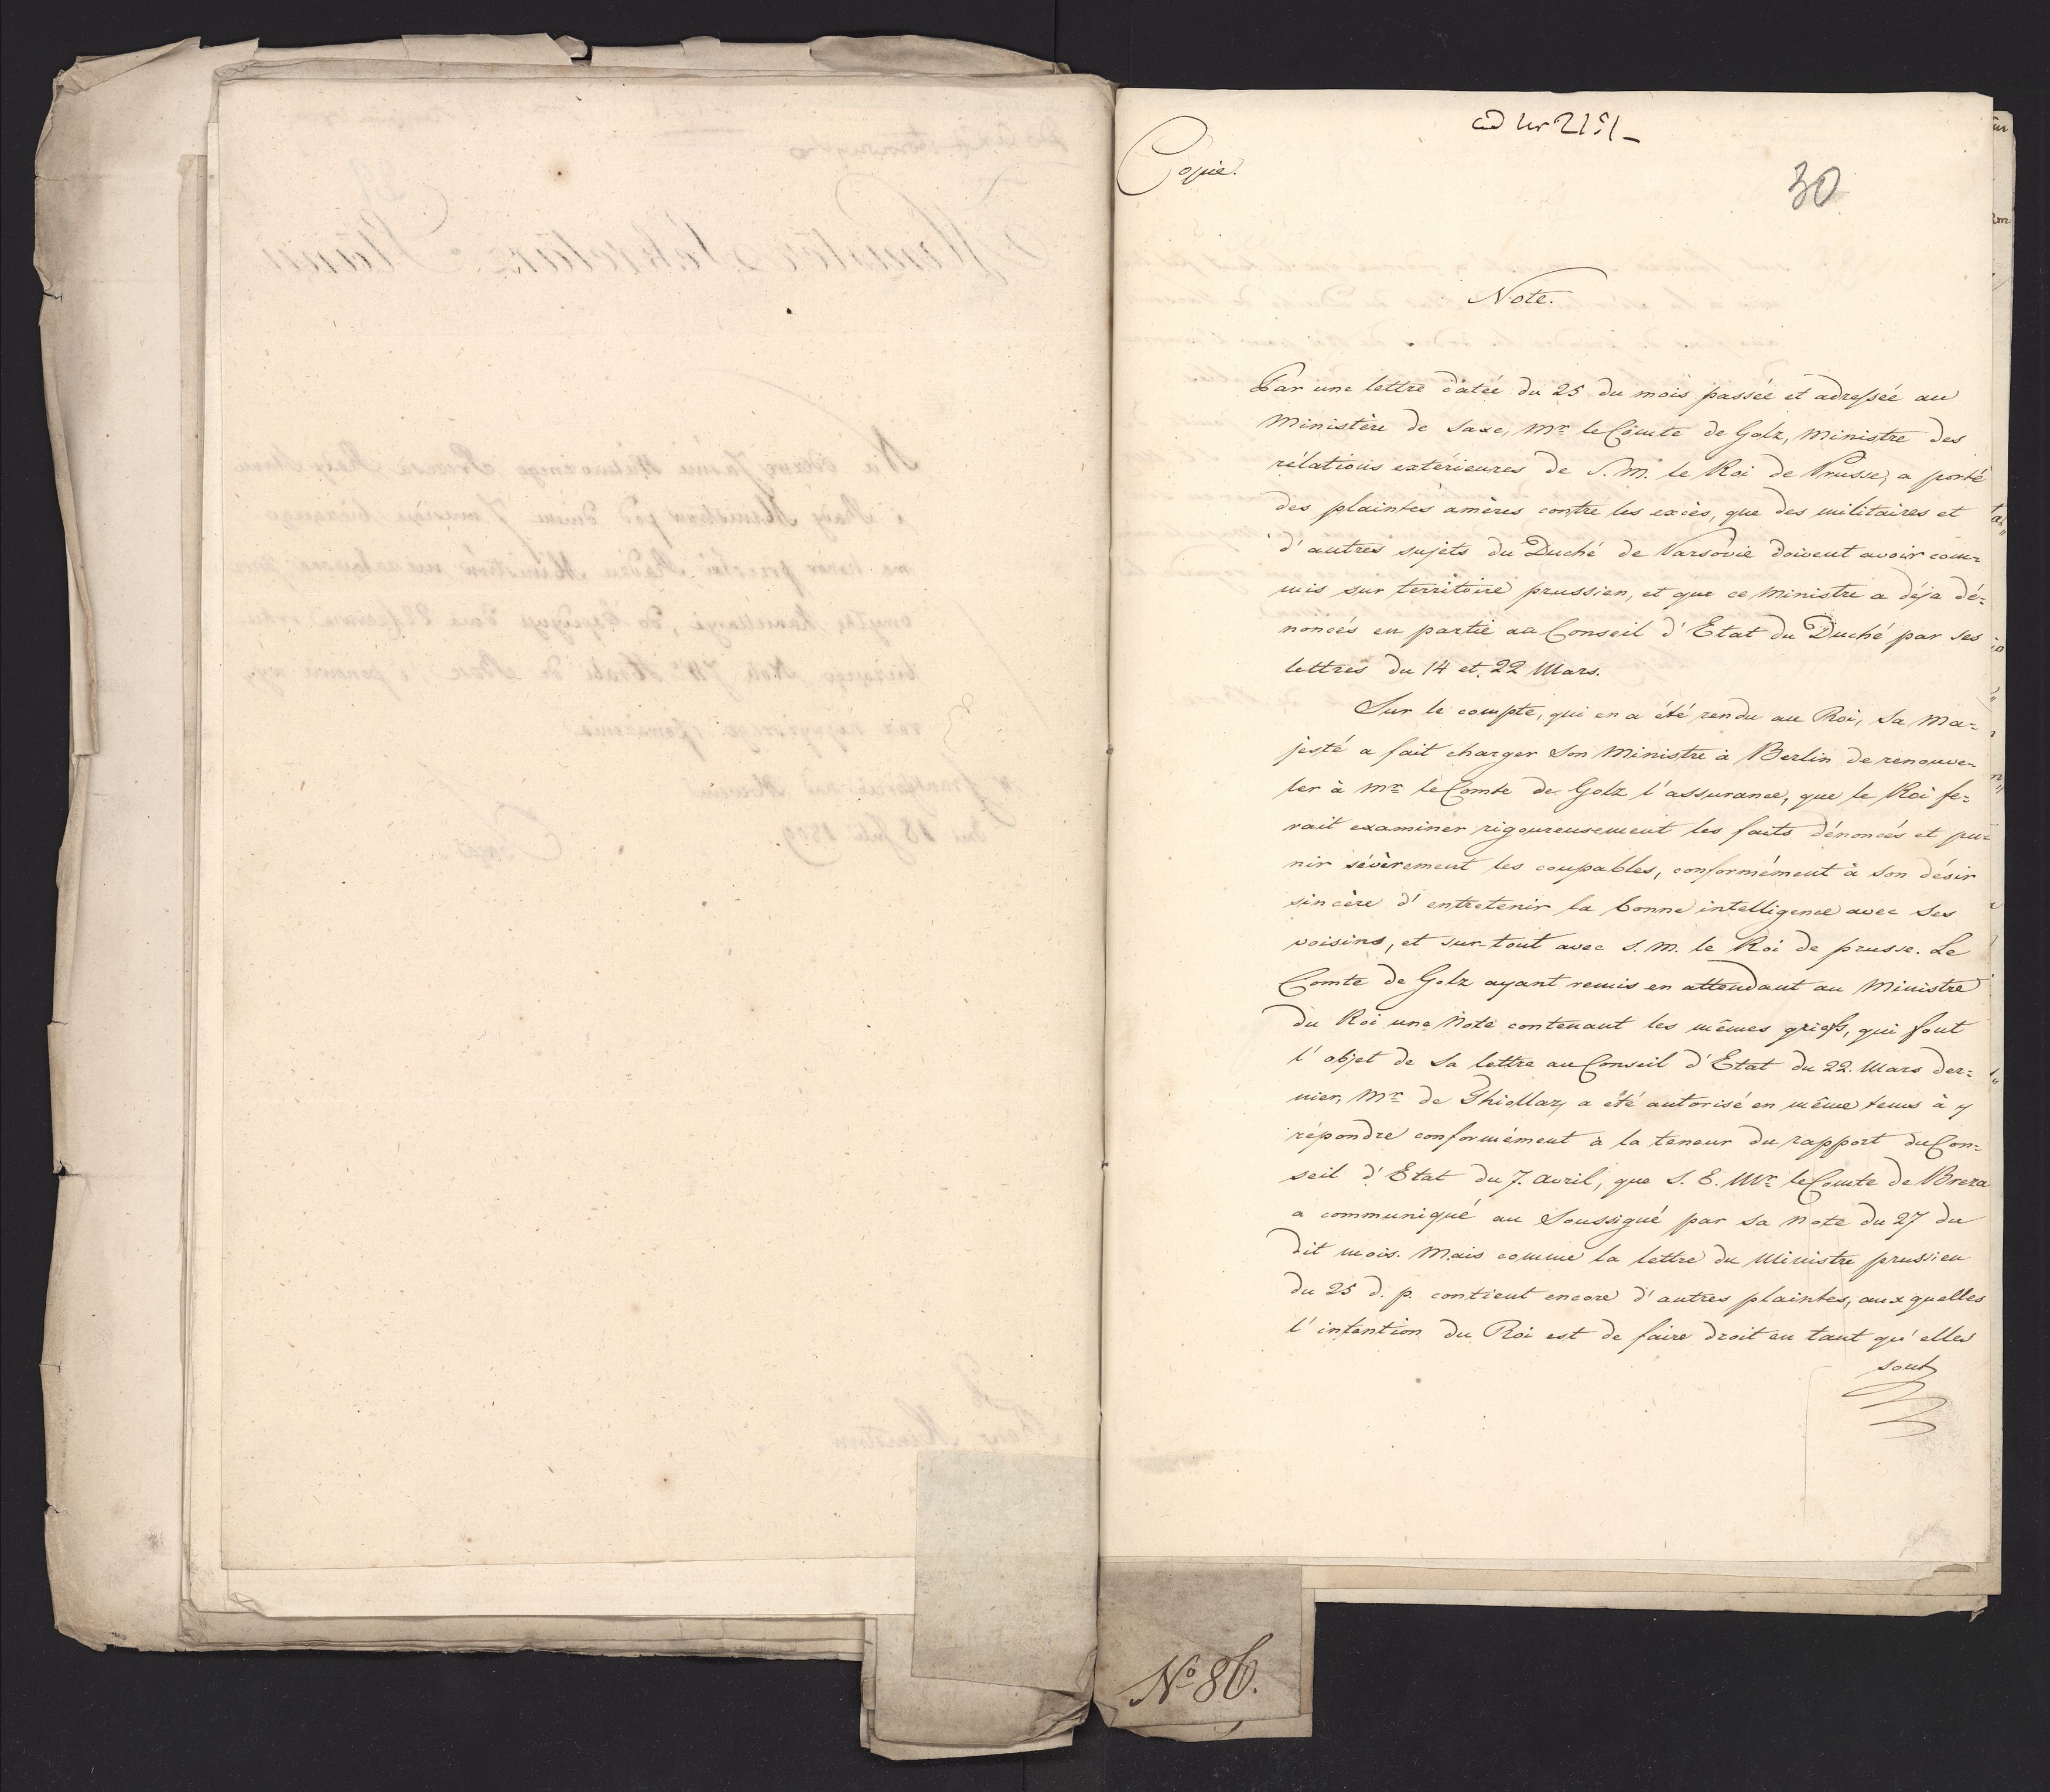 ad nr 2151
Copie.
30
Note.
Par une lettre datée du 25 du mois passée et adressée au
Ministère de Saxe, Mr. le Comte de Golz, Ministre des
rélations extérieures de S. M. le Roi de Prusse, a porté
des plaintes amères contre les excès, que des militaires et
d'autres sujets du Duché de Varsovie doivent avoir com=
mis sur territoire prussien, et que ce Ministre a déja dé=
noncés en partie au Conseil d'Etat du Duché par ses
lettres du 14 et 22 Mars.
Sur le compte, qui en a été rendu au Roi, Sa Ma=
jesté a fait charger Son Ministre à Berlin de renouve=
ler à Mr. le Comte de Golz l'assurance, que le Roi fe=
rait examiner rigoureusement les faits dénoncés et pu=
nir sévèrement les coupables, conformément à Son désir
sincère d'entretenir la bonne intelligence avec Ses
voisins, et sur-tout avec S. M. le Roi de prusse. Le
Comte de Golz ayant remis en attendant au Ministre
du Roi une Note contenant les mêmes griefs, qui font
l'objet de Sa lettre au Conseil d'Etat du 22. Mars der=
nier, Mr. de Thiollaz a été autorisé en même tems à y
répondre conformément à la teneur du rapport du Con=
seil d'Etat du 7. Avril, que S. E. Mr. le Comte de Breza
a communiqué au Soussigné par sa Note du 27 du
dit mois. Mais comme la lettre du Ministre prussien
du 25 d. p. contient encore d'autres plaintes, aux quelles
l'intention du Roi est de faire droit en tant qu'elles
sont
No 86.